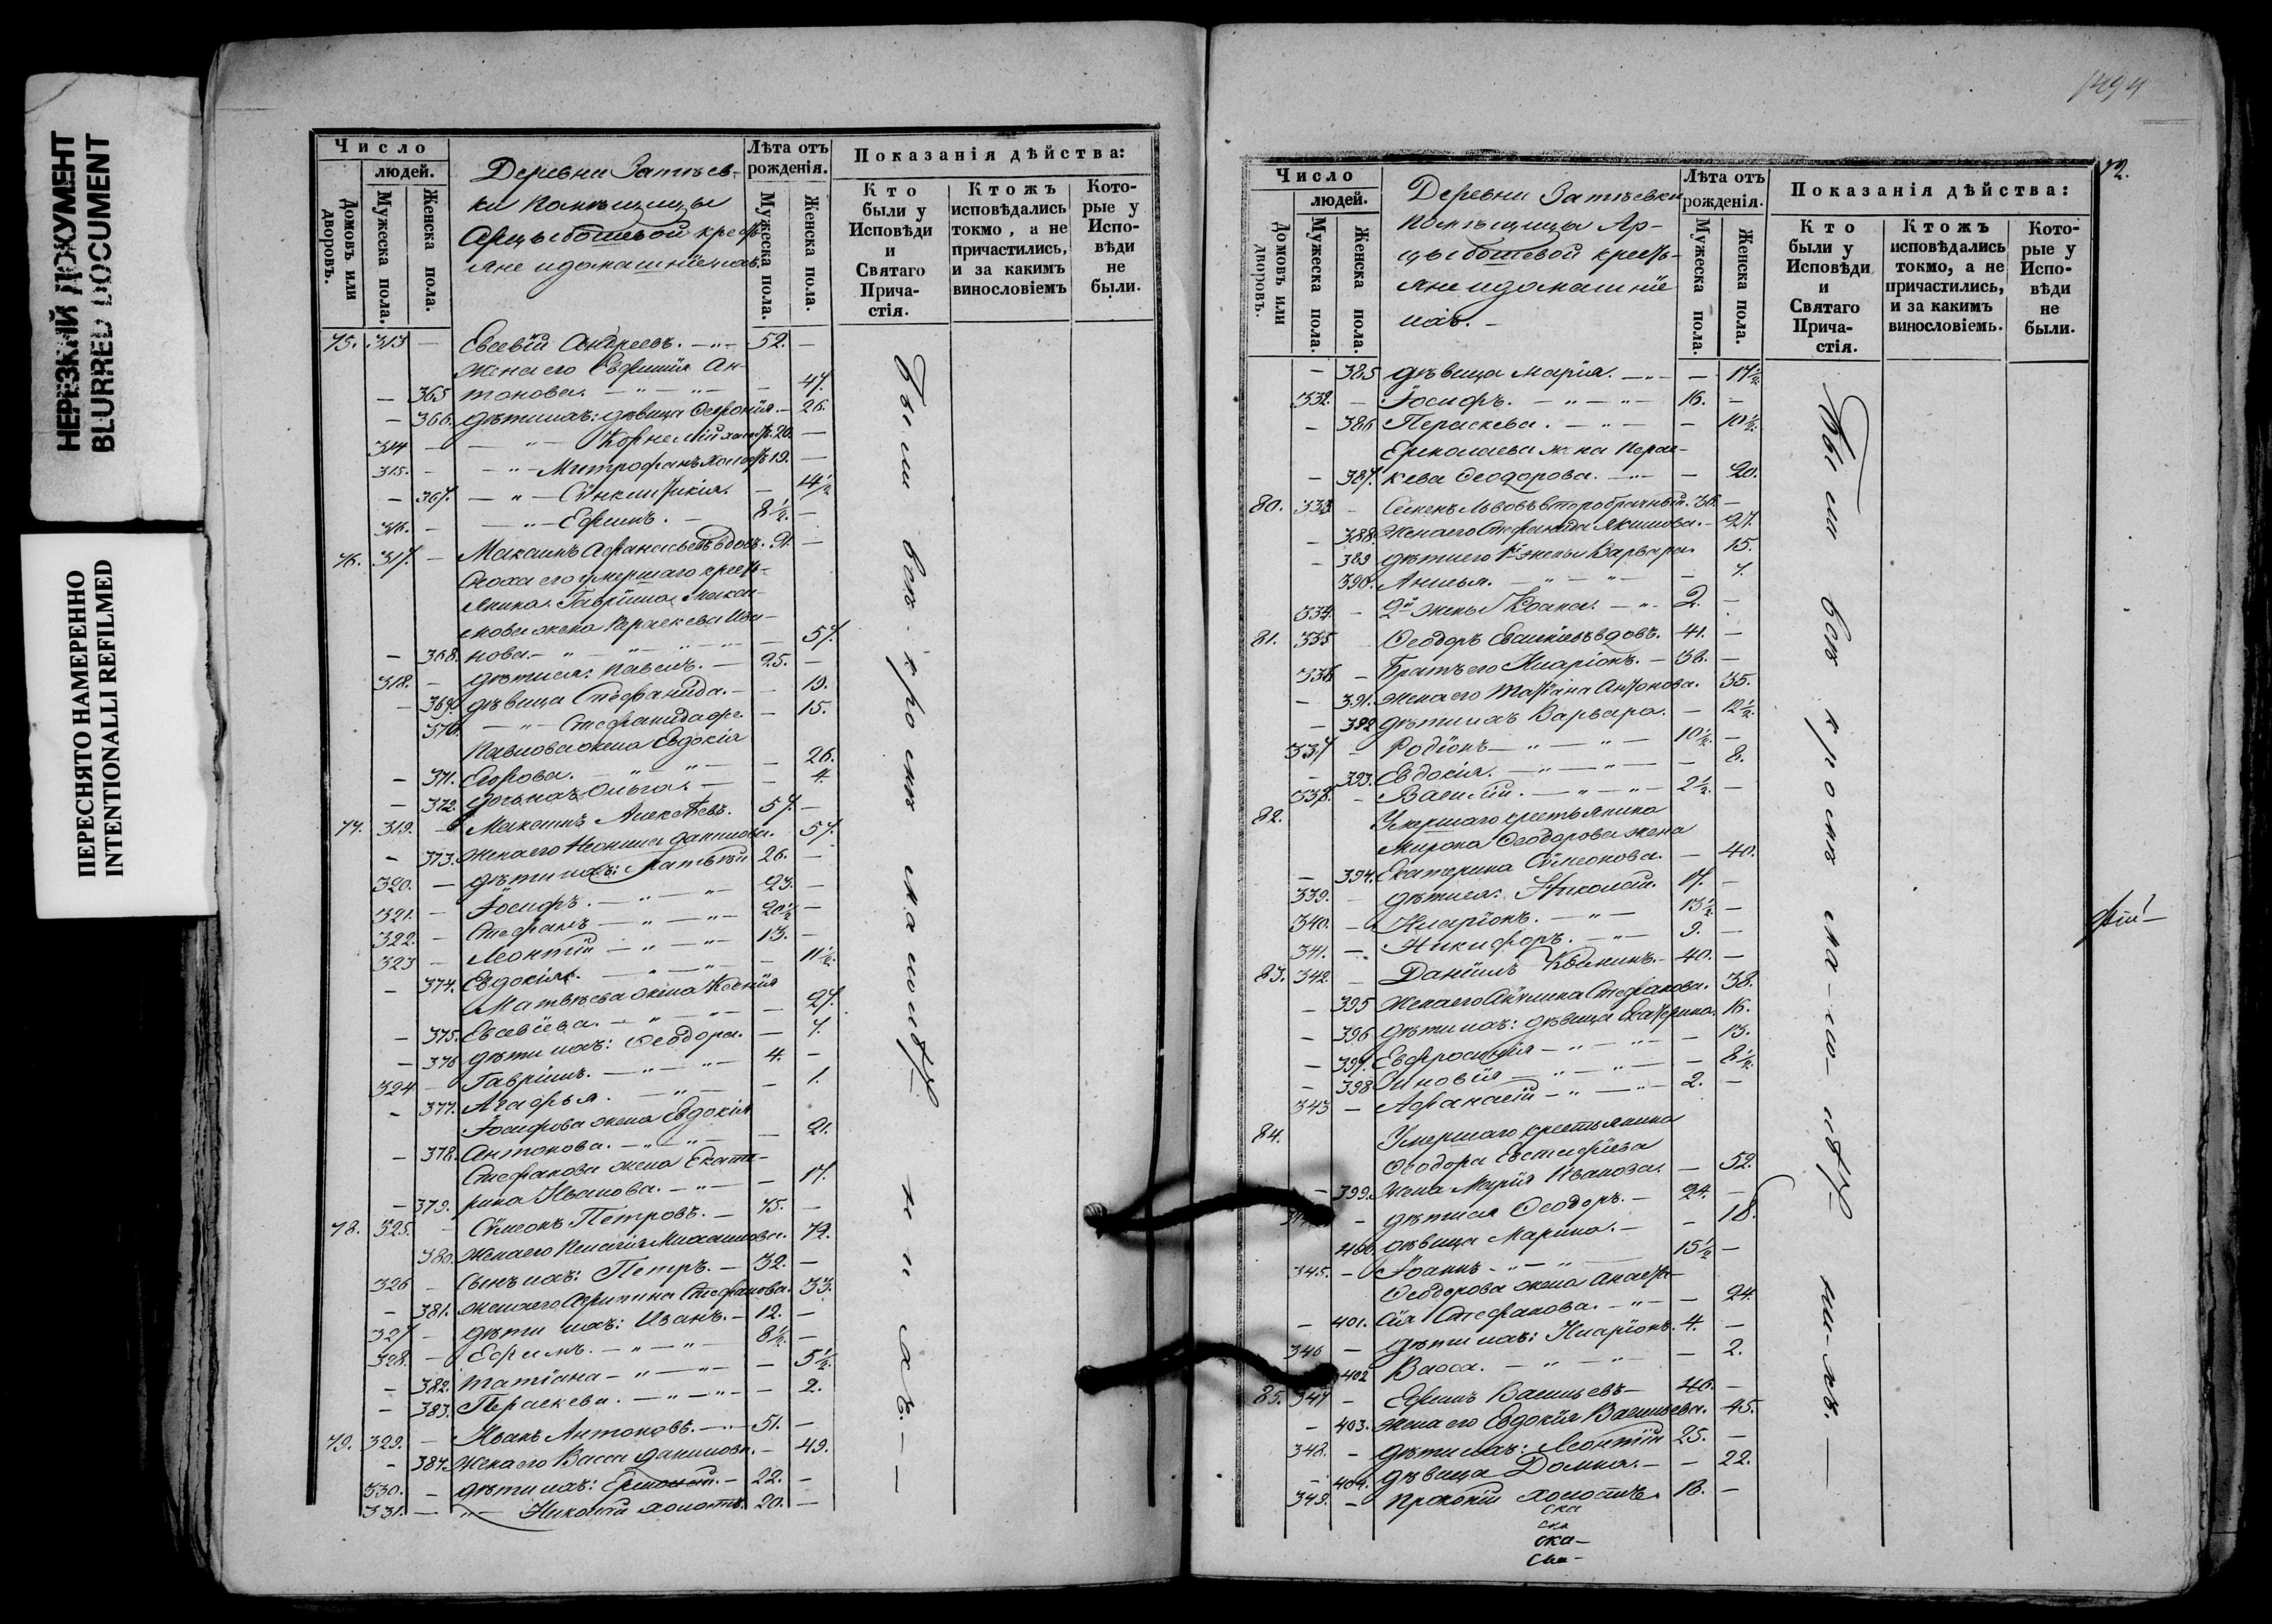 НЕРЕЗКИЙ ДОКУМЕНТ
BLURRED DOCUMENT
ПЕРЕСНЯТО НАМЕРЕННО
INTENTIONALLI REFILMED
Число
людей.
Домовъ или дворовъ.
Мужеска пола.
Женска пола.
Деревни Затѣев-
ки помѣщицы
Арцыбышевой крестъ-
яне и домашніе ихъ.
Лѣта отъ рожденія.
Мужеска пола.
Женска пола.
Показанія дѣйства:
Кто были у Исповѣди и Святаго Прича- стія.
Ктожъ исповѣдались токмо, а не причастились, и за какимъ винословіемъ
Кото- рые у Испо- вѣди не были.
75. 313 — Евсевій Андреевъ. — 52. —
Жена его Евфимія Ан-
— 365 тонова. — 47.
— 366. дѣти ихъ: дѣвица Феофонія. — 26.
314 — Корнелій холостъ. 20. —
315. — Митрофанъ холостъ 19. —
— 367. — Сѵнклитикія. — 14½
316. — Ефимъ. — 8½. —
76. 317. — Максимъ Афанасьевъ вдовъ. —
Сноха его умершаго кресть-
янина Гавріила Макси-
мова жена Параскева Ива-
— 368. нова. — 57.
318. — дѣти ея: Павелъ. — 25. —
— 369. дѣвица Стефанида. — 19.
370. — Стефанида — 15.
Павлова жена Евдокія
— 371. Егорова. — 26.
— 372. дочь ихъ Ольга. — 4.
77. 319. — Максимъ Алексѣевъ. 57. —
— 373. Жена его Неонила Данилова. 57.
320. — дѣти ихъ: Матвѣй 26. —
321. — Іосифъ. — 23. —
322. — Стефанъ — 20½ —
323 — Леонтій — 13. —
— 374. Евдокія. — 11½.
Матвѣева жена Ксенія
— 375. Евсевіева. — 27.
— 376 дѣти ихъ: Феодора. — 7.
324 — Гавріилъ. — 4. —
— 377. Агафья. — 1.
Іосифова жена Евдокія
— 378. Антонова. — 21.
Стефанова жена Екате-
— 379. рина Иванова. — 17.
78. 325. — Сѵмеонъ Петровъ. — 75. —
380. Жена его Пелагія Михаилова. 72.
326 — Сынъ ихъ: Петръ. — 32. —
— 381. Жена его Агрипина Стефанова. 33.
327 — дѣти ихъ: Иванъ. — 12. —
328. — Ефимъ. — 8½. —
— 382. Татіана — 5½.
— 383. Параскева. — 2.
79. 329. — Иванъ Антоновъ. — 51. —
— 384. Жена его Васса Данилова. — 49.
330. — дѣти ихъ: Ермолай. — 22. —
331. — Николай холостъ. 20. —
Были всѣ кромѣ малолѣтнихъ. —
1494
72.
Число
людей.
Домовъ или дворовъ.
Мужеска пола.
Женска пола.
Деревни Затѣевки
помѣщицы Ар-
цыбышевой кресть-
яне и домашніе
ихъ. —
Лѣта отъ рожденія.
Мужеска пола.
Женска пола.
Показанія дѣйства:
Кто были у Исповѣди и Святаго Прича- стія.
Ктожъ исповѣдались токмо, а не причастились, и за какимъ винословіемъ.
Кото- рые у Испо- вѣди не были.
— 385 дѣвица Марія. — 17½
332. — Іосифъ. — 16. —
— 386 Параскева. — 10½.
Ермолаева жена Парас-
— 387. кева Феодорова. — 20.
80. 333 — Львовъ второбрачный. 36. —
— 388. Жена его Стефанида Якимова. — 27.
— 389 дѣти его 1й жены Варвара 15.
390. Анисья. — 7.
334. — 2й жены Іоанна. — 2. —
81. 335 Феодоръ вдовъ. 41. —
336 — Братъ его Иларіонъ. — 36. —
— 391. Жена его Татіана Антонова. 35.
— 392 дѣти ихъ Варвара. — 12½.
337 — Родіонъ — 10½. —
— 393. Евдокія. — 8.
338. — Василій. — 2½. —
82. Умершаго крестьянина
Мирона Феодорова жена
— 394. Екатерина Сѵмеонова. — 40.
339. — дѣти ея: Николай. 17. —
340. — Иларіонъ. — 13½ —
341. — Никифоръ. — 9. —
83. 342. — Даніилъ — 40. —
— 395 Жена его Стефанова. 38.
— 396 дѣти ихъ: дѣвица Екатерина. 16.
— 397. Евфросинія — 13.
— 398 Зиновія — 8½.
343 — Афанасій — 2. —
84. Умершаго крестьянина
Феодора Евстафіева
— 399. Жена Марія Иванова. — 52.
— дѣти ея Феодоръ. — 24. —
400. дѣвица Марина. — 18.
345. — Іоаннъ — 15½ —
Феодорова жена Анаста-
— 401. сія Стефанова. — 24.
346 — дѣти ихъ: Иларіонъ. 4. —
402 Васса. — 2.
85. 347 — Ефимъ Васильевъ — 46. —
— 403. Жена его Евдокія Васильева. 45.
348. — дѣти ихъ: Леонтій 25. —
— 404. дѣвица Домна. — 22.
349. — Прокопій холостъ. 18. —
ска
ска
ска—
Были всѣ кромѣ малолѣтнихъ. —